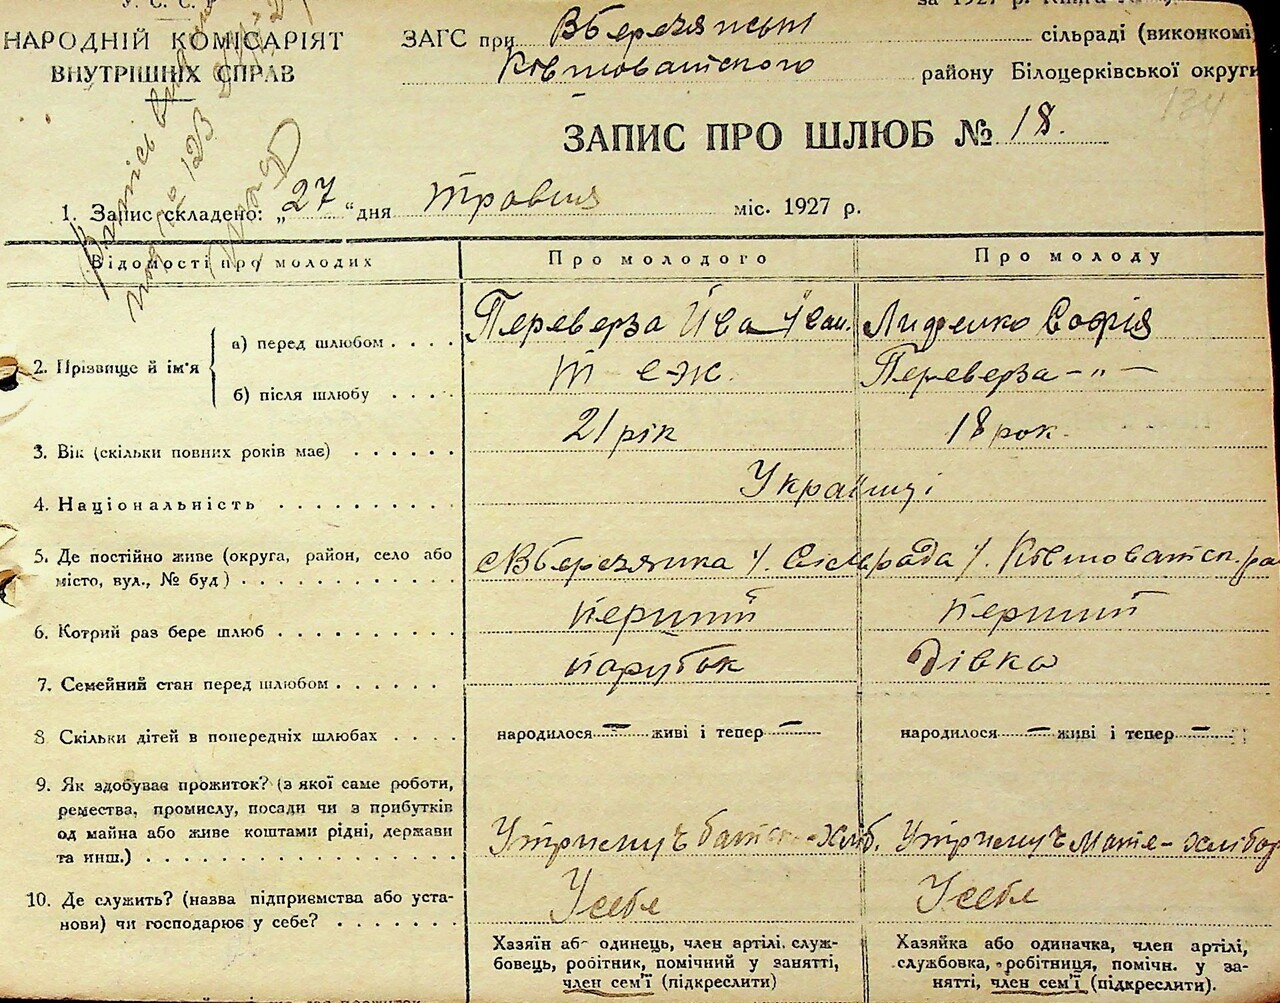 У. С. С. Р.
за 1927 р. Книга
НАРОДНІЙ КОМІСАРІЯТ
ВНУТРІШНІХ СПРАВ
ЗАГС при Вберезянські сільраді (виконкомі)
Ківшоватского району Білоцерківської округи
134
ЗАПИС ПРО ШЛЮБ № 18.
1. Запис складено: „27“ дня травня міс. 1927 р.
Відомості про молодих Про молодого Про молоду
2. Прізвище й ім'я
а) перед шлюбом . . . . Переверза Йва Іван. Лиденко Софія
б) після шлюбу . . . . теж. Переверза -"-
3. Вік (скільки повних років має) . . . . . . 21 рік 18 рок.
4. Національність . . . . . . . . . . Українці
5. Де постійно живе (округа, район, село або
місто, вул., № буд) . . . . . . . . . . . с Вберезянка /. Сільрада /. Ківшоватск. ра
6. Котрий раз бере шлюб . . . . . . . . . . перший перший
7. Семейний стан перед шлюбом . . . . . . парубок дівка
8 Скільки дітей в попередніх шлюбах . . . . народилося — живі і тепер — народилося — живі і тепер —
9. Як здобуває прожиток? (з якої саме роботи,
ремества, промислу, посади чи з прибутків
од майна або живе коштами рідні, держави
та инш.) . . . . . . . . . . . . . . . . . УтримуЪ хліб. УтримуЪ Матіе - хлібор
10. Де служить? (назва підприємства або уста-
нови) чи господарює у себе? . . . . . . . У себе У себе
Хазяїн або одинець, член артілі, служ-
бовець, робітник, помічний у занятті,
член сем'ї (підкреслити)
Хазяйка або одиначка, член артілі,
службовка, робітниця, помічн. у за-
нятті, член сем'ї (підкреслити).